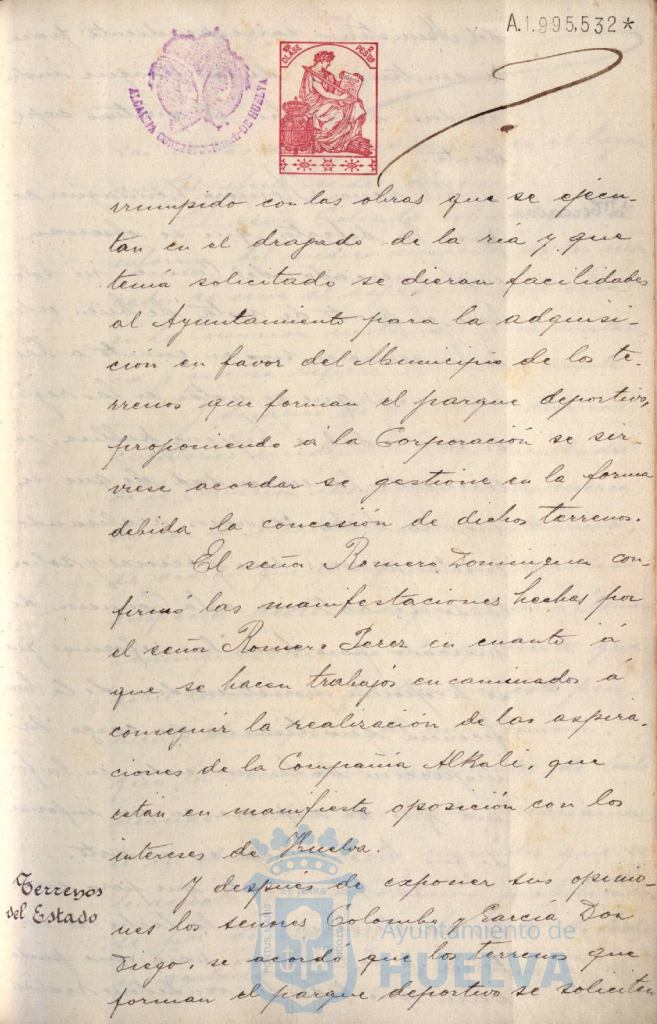 A.1.995,532*
ALCALDIA CONSTITUCIONAL DE HUELVA
CLASE
2 PESTAS
rrumpido con las obras que se ejecu-
tan en el dragado de la ría y que
tenía solicitado se dieran facilidades
al Ayuntamiento para la adquisi-
ción en favor del Municipio de los te-
rrenos que forman el parque deportivo,
proponiendo á la Corporación se sir-
viese acordar se gestione en la forma
debida la concesión de dichos terrenos.
El señor Romero Dominguez con-
firmó las manifestaciones hechas por
el señor Romero Perez en cuanto á
que se hacen trabajos encaminados á
conseguir la realización de las aspira-
ciones de la Compañía Alkali, que
están en manifiesta oposición con los
intereses de Huelva.
Terrenos
del Estado
Y después de exponer sus opinio-
nes los señores Colombo y García Don
Diego, se acordó que los terrenos que
forman el parque deportivo se soliciten
Ayuntamiento de
HUELVA